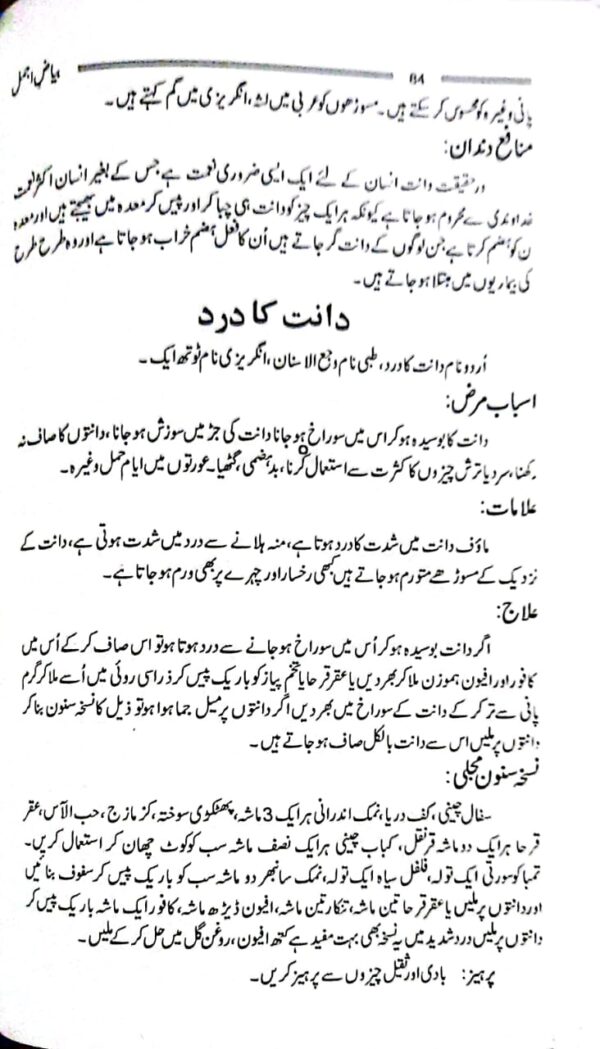 بیاض اجمل
64
پانی وغیرہ کو محسوس کر سکتے ہیں۔ مسوڑھوں کو عربی میں لثہ، انگریزی میں گم کہتے ہیں۔
منافع دندان:
در حقیقت دانت انسان کے لئے ایک ایسی ضروری نعمت ہے جس کے بغیر انسان اکثر نعمت
خداوندی سے محروم ہو جاتا ہے کیونکہ ہر ایک چیز کو دانت ہی چبا کر اور پیس کر معدہ میں بھیجتے ہیں اور معدہ
ن کو ہضم کرتا ہے جن لوگوں کے دانت گر جاتے ہیں اُن کا فعل ہضم خراب ہو جاتا ہے اور وہ طرح طرح
کی بیماریوں میں مبتلا ہو جاتے ہیں۔
دانت کا درد
اُردو نام دانت کا درد، طبی نام وجع الاسنان، انگریزی نام ٹوتھ ایک۔
اسباب مرض:
دانت کا بوسیدہ ہو کر اس میں سوراخ ہو جانا دانت کی جڑ میں سوزش ہو جانا، دانتوں کا صاف نہ
رکھنا، سرد یا ترش چیزوں کا کثرت سے استعمال کرنا، بدہضمی، گٹھیا۔ عورتوں میں ایام حمل وغیرہ۔
علامات:
ماؤف دانت میں شدت کا درد ہوتا ہے، منہ ہلانے سے درد میں شدت ہوتی ہے، دانت کے
نزدیک کے مسوڑھے متورم ہو جاتے ہیں کبھی رخسار اور چہرے پر بھی ورم ہو جاتا ہے۔
علاج:
اگر دانت بوسیدہ ہو کر اُس میں سوراخ ہو جانے سے درد ہوتا ہو تو اس صاف کر کے اُس میں
کافور اور افیون ہموزن ملا کر بھر دیں یا عقر قرحا یا تخم پیاز کو باریک پیس کر ذرا سی روئی میں اُسے ملا کر گرم
پانی سے تر کر کے دانت کے سوراخ میں بھر دیں اگر دانتوں پر میل جما ہوا ہو تو ذیل کا نسخہ سنون بنا کر
دانتوں پر ملیں اس سے دانت بالکل صاف ہو جاتے ہیں۔
نسخہ سنون مجلی:
سفال چینی، کف دریا، نمک اندرانی ہر ایک 3 ماشہ، پھٹکڑی سوختہ، کزمازج، حب الآس، عقر
قرحا ہر ایک دو ماشہ قرنفل، کباب چینی ہر ایک نصف ماشہ سب کو کوٹ چھان کر استعمال کریں۔
تمباکو سورتی ایک تولہ، فلفل سیاہ ایک تولہ، نمک سانبھر دو ماشہ سب کو باریک پیس کر سفوف بنائیں
اور دانتوں پر ملیں یا عقر قرحا تین ماشہ، تنکار تین ماشہ، افیون ڈیڑھ ماشہ، کافور ایک ماشہ باریک پیس کر
دانتوں پر ملیں درد شدید میں یہ نسخہ بھی بہت مفید ہے کتھ افیون، روغن گل میں حل کر کے ملیں۔
پرہیز: بادی اور ثقیل چیزوں سے پرہیز کریں۔